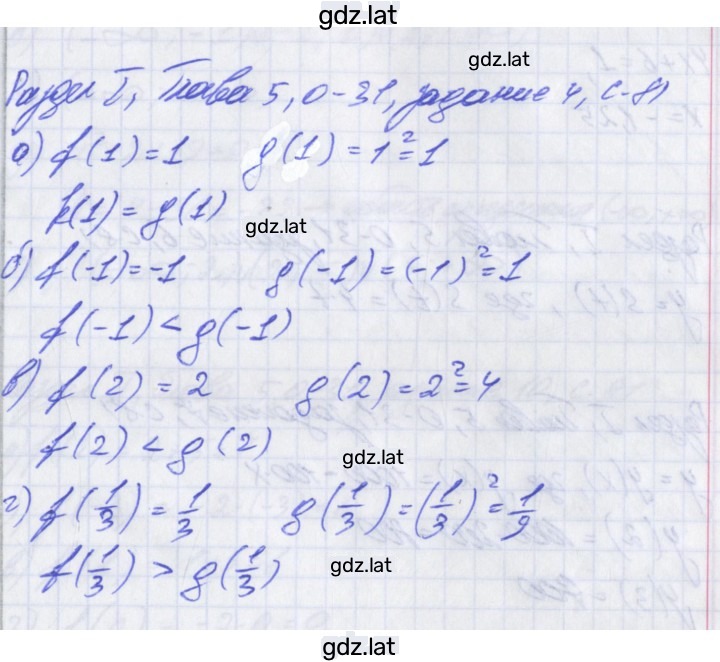 gdz.lat
gdz.lat
Раздел I, Глава 5, 0-31, задание 4, с-81
а) f(1) = 1 g(1) = 1² = 1
f(1) = g(1)
gdz.lat
б) f(-1) = -1 g(-1) = (-1)² = 1
f(-1) < g(-1)
в) f(2) = 2 g(2) = 2² = 4
f(2) < g(2)
gdz.lat
г) f(1/3) = 1/3 g(1/3) = (1/3)² = 1/9
f(1/3) > g(1/3)
gdz.lat
gdz.lat